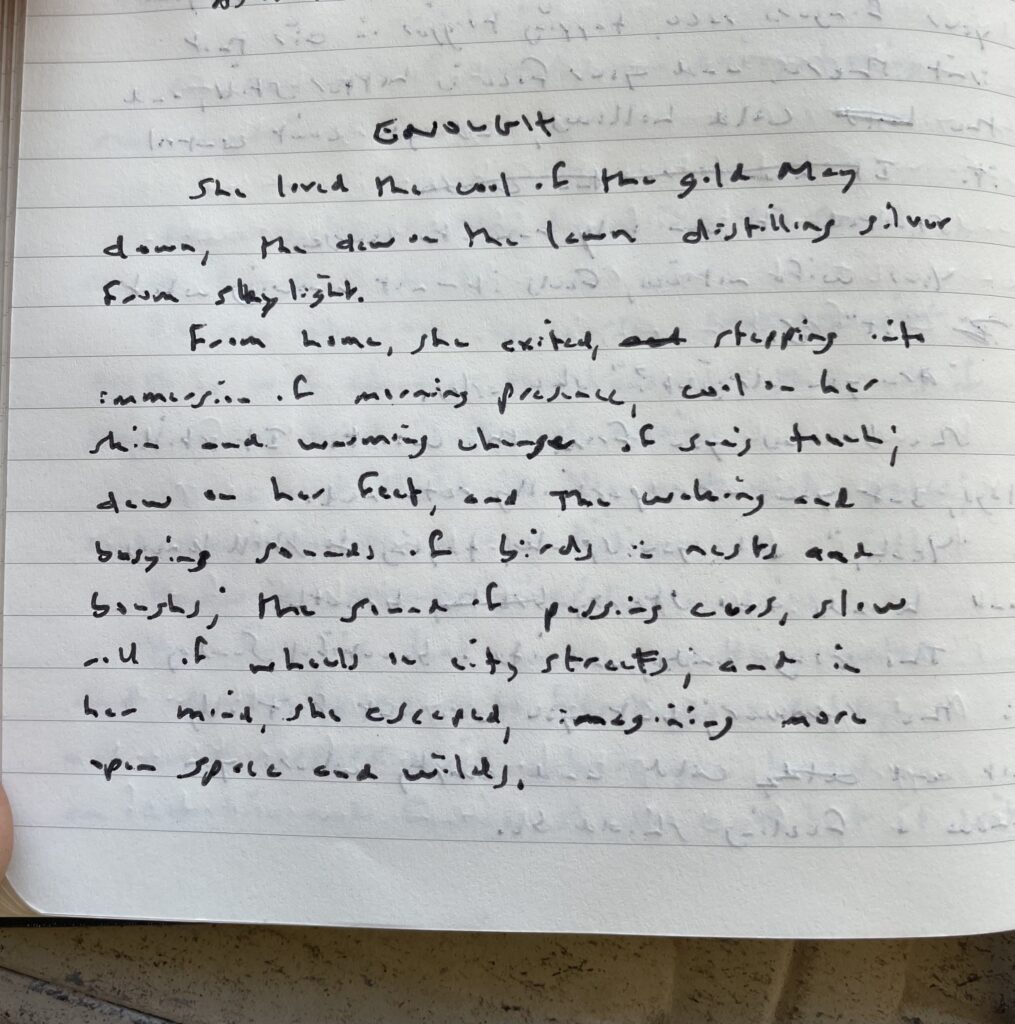 ENOUGH
She loved the cool of the gold May
dawn, the dew on the lawn distilling silver
from skylight.
From home, she exited, stepping into
immersion of morning presence, cool on her
skin and warming change of sun's touch;
dew on her feet, and the waking and
busying sounds of birds in nests and
boughs; the sound of passing cars, slow
roll of wheels on city streets; and in
her mind, she escaped, imagining more
open space and wilds.